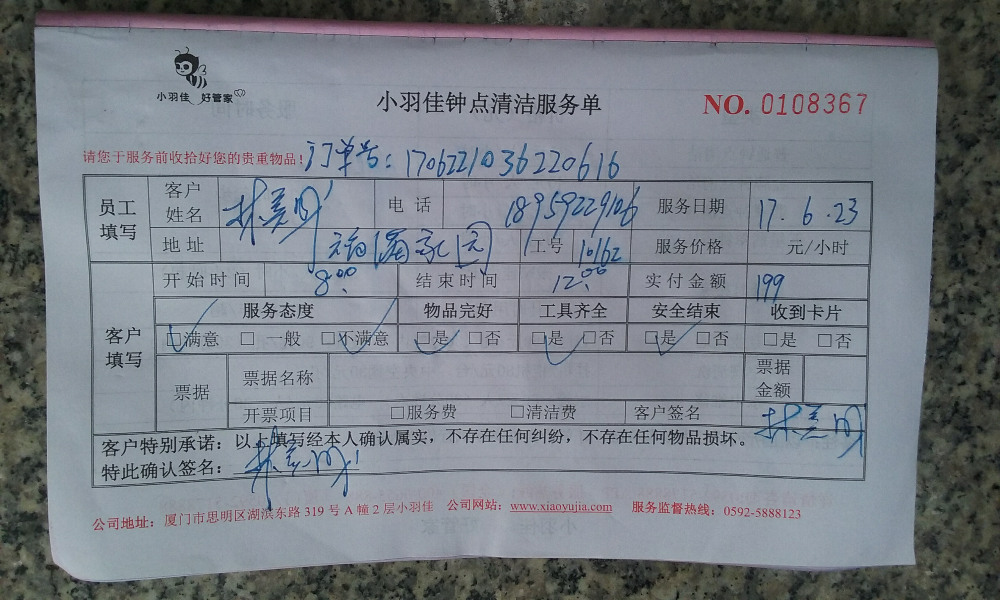 小羽佳 好管家
小羽佳钟点清洁服务单 NO. 0108367
请您于服务前收拾好您的贵重物品! 订单号: 1706221036220616
员工填写 客户姓名 林美 电话 18959229106 服务日期 17.6.23
地址 家园 工号 10162 服务价格 元/小时
客户填写 开始时间 8:00 结束时间 12:00 实付金额 199
服务态度 物品完好 工具齐全 安全结束 收到卡片
☑满意 □ 一般 ☑不满意 ☑是 □否 ☑是 □否 ☑是 □否 □是 □否
票据 票据名称 票据金额
开票项目 □服务费 □清洁费 客户签名 林美
客户特别承诺: 以上填写经本人确认属实,不存在任何纠纷,不存在任何物品损坏。
特此确认签名: 林美
公司地址: 厦门市思明区湖滨东路 319 号 A 幢 2 层小羽佳 公司网站: www.xiaoyujia.com 服务监督热线: 0592-5888123